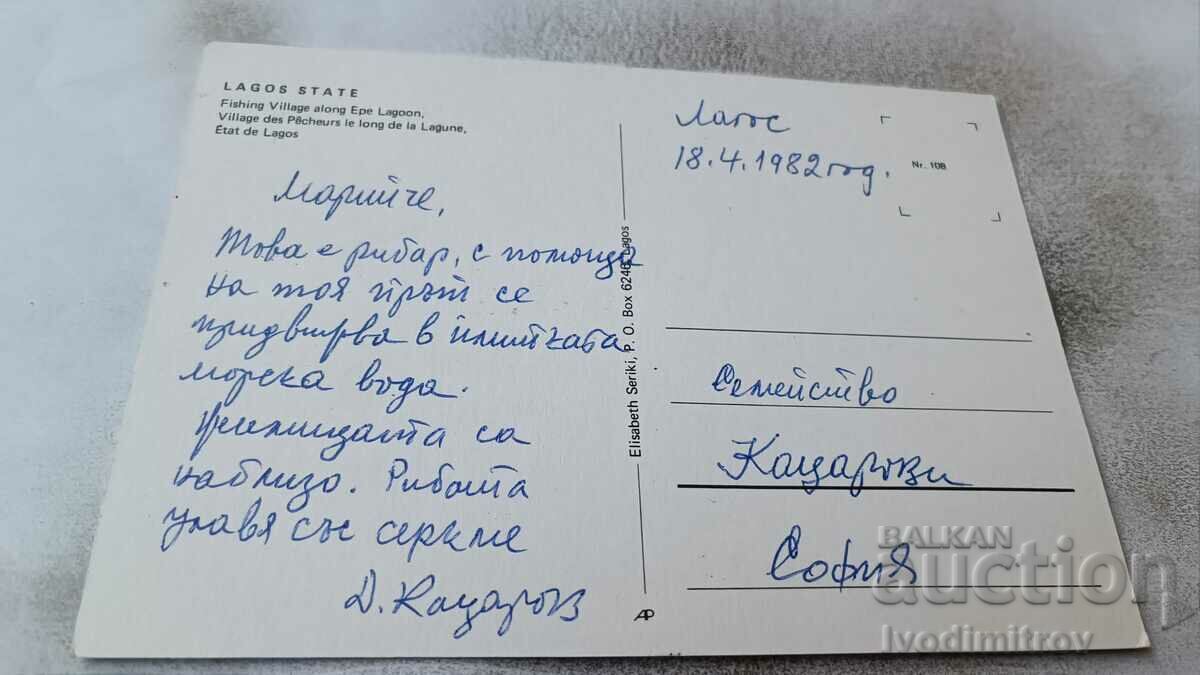 LAGOS STATE
Fishing Village along Epe Lagoon,
Village des Pêcheurs le long de la Lagune,
État de Lagos
Марийче,
Това е рибар, с помощта
на тоя прът се
придвижва в плитката
морска вода.
Жилищата са
наблизо. Рибата
улавя със серкме
Д. Кацаров
Elisabeth Seriki, P. O. Box 6246, Lagos
AP
Лагос
18.4.1982 год.
Nr. 108
Семейство
Кацарови
София
BALKAN
auction
Ivodimitrov